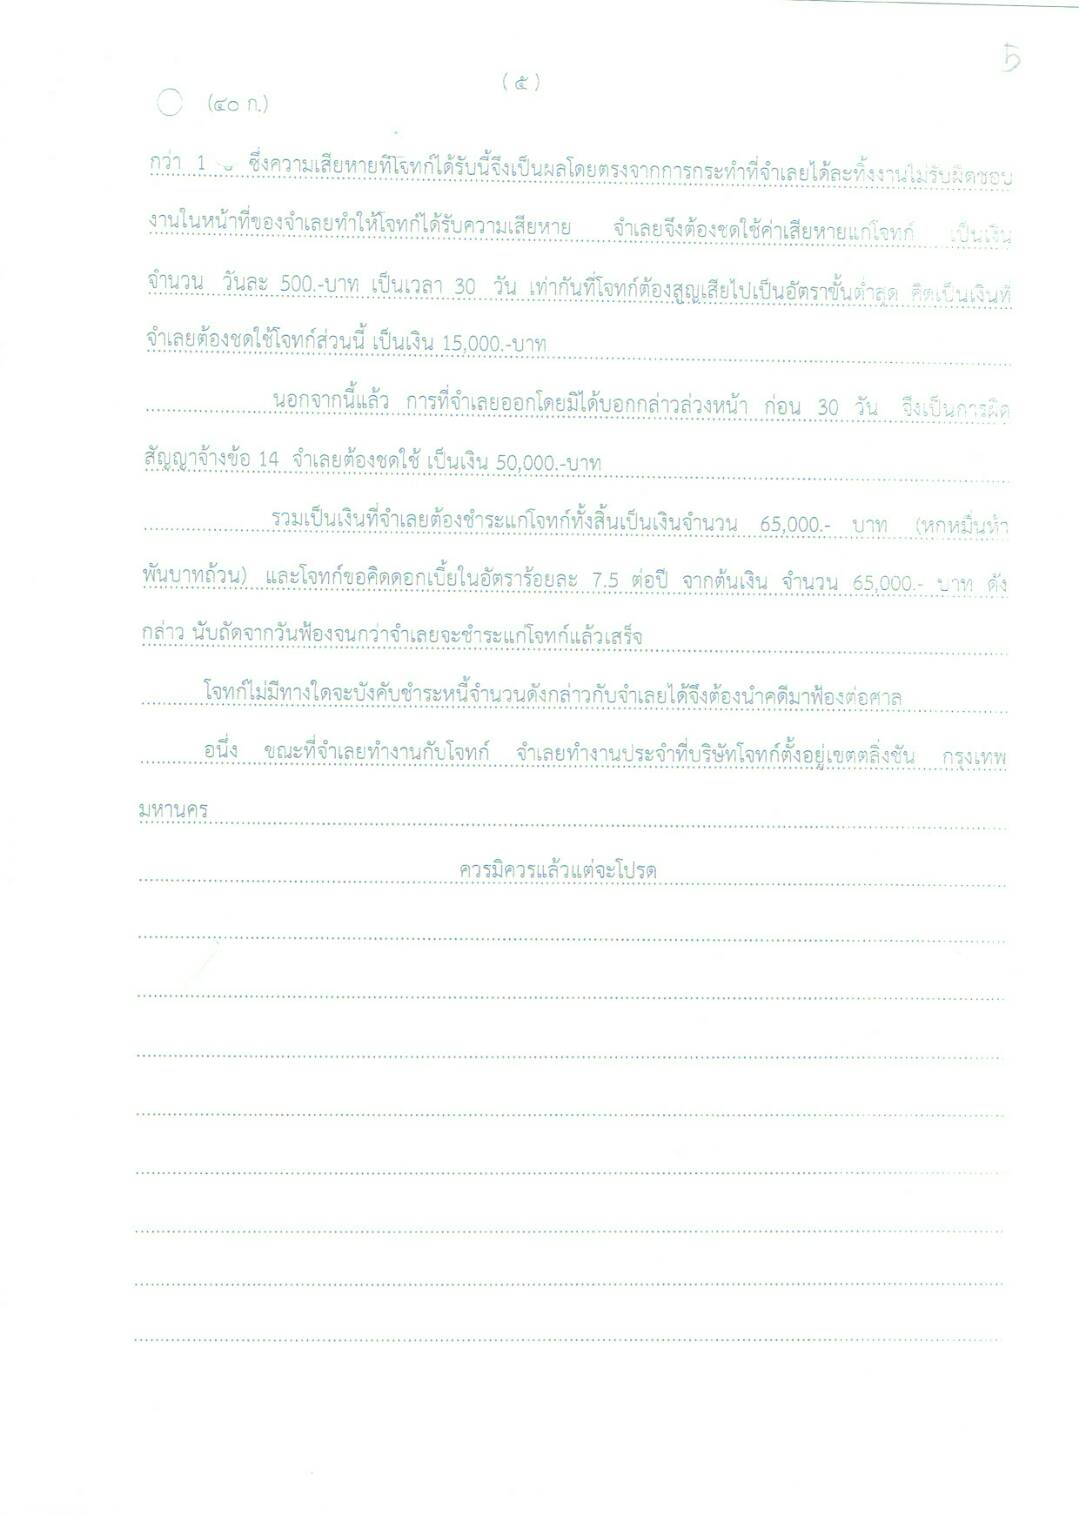 5
( ๕ )
(๔๐ ก.)
กว่า 1 ซึ่งความเสียหายที่โจทก์ได้รับนี้จึงเป็นผลโดยตรงจากการกระทำที่จำเลยได้ละทิ้งงานไม่รับผิดชอบ
งานในหน้าที่ของจำเลยทำให้โจทก์ได้รับความเสียหาย จำเลยจึงต้องชดใช้ค่าเสียหายแก่โจทก์ เป็นเงิน
จำนวน วันละ 500.-บาท เป็นเวลา 30 วัน เท่ากันที่โจทก์ต้องสูญเสียไปเป็นอัตราขั้นต่ำสุด คิดเป็นเงินที่
จำเลยต้องชดใช้โจทก์ส่วนนี้ เป็นเงิน 15,000.-บาท
นอกจากนี้แล้ว การที่จำเลยออกโดยมิได้บอกกล่าวล่วงหน้า ก่อน 30 วัน จึงเป็นการผิด
สัญญาจ้างข้อ 14 จำเลยต้องชดใช้ เป็นเงิน 50,000.-บาท
รวมเป็นเงินที่จำเลยต้องชำระแก่โจทก์ทั้งสิ้นเป็นเงินจำนวน 65,000.- บาท (หกหมื่นห้า
พันบาทถ้วน) และโจทก์ขอคิดดอกเบี้ยในอัตราร้อยละ 7.5 ต่อปี จากต้นเงิน จำนวน 65,000.- บาท ดัง
กล่าว นับถัดจากวันฟ้องจนกว่าจำเลยจะชำระแก่โจทก์แล้วเสร็จ
โจทก์ไม่มีทางใดจะบังคับชำระหนี้จำนวนดังกล่าวกับจำเลยได้จึงต้องนำคดีมาฟ้องต่อศาล
อนึ่ง ขณะที่จำเลยทำงานกับโจทก์ จำเลยทำงานประจำที่บริษัทโจทก์ตั้งอยู่เขตตลิ่งชัน กรุงเทพ
มหานคร
ควรมิควรแล้วแต่จะโปรด